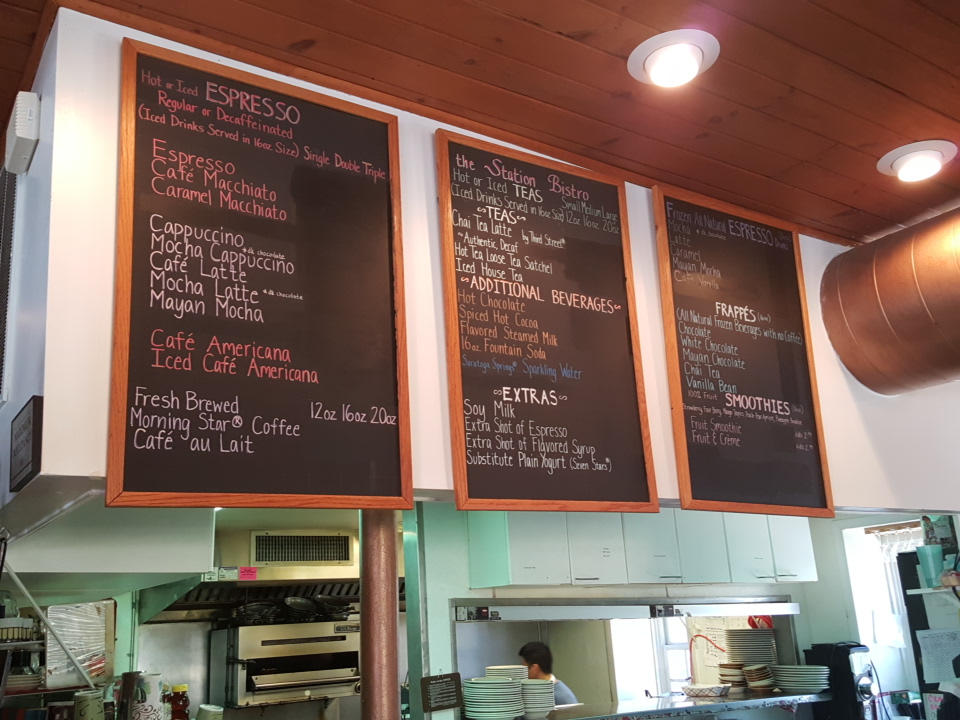 Hot or Iced ESPRESSO
Regular or Decaffeinated
(Iced Drinks Served in 16oz Size) Single Double Triple
Espresso
Café Macchiato
Caramel Macchiato
Cappuccino
Mocha Cappuccino dk chocolate
Café Latte
Mocha Latte dk chocolate
Mayan Mocha
Café Americana
Iced Café Americana
Fresh Brewed
Morning Star® Coffee 12oz 16oz 20oz
Café au Lait
the Station Bistro
Hot or Iced TEAS Small Medium Large
(Iced Drinks Served in 16oz Size) 12oz 16oz 20oz
~TEAS~
Chai Tea Latte by Third Street®
Authentic, Decaf
Hot Tea Loose Tea Satchel
Iced House Tea
~ADDITIONAL BEVERAGES~
Hot Chocolate
Spiced Hot Cocoa
Flavored Steamed Milk
16oz Fountain Soda
Saratoga Springs® Sparkling Water
~EXTRAS~
Soy Milk
Extra Shot of Espresso
Extra Shot of Flavored Syrup
Substitute Plain Yogurt (Seven Stars®)
Frozen All Natural ESPRESSO
Mocha dk chocolate
Latte
Caramel
Mayan Mocha
Café Vanilla
FRAPPÉS
(All Natural Frozen Beverages with no Coffee)
Chocolate
White Chocolate
Mayan Chocolate
Chai Tea
Vanilla Bean
100% Fruit SMOOTHIES
Fruit Smoothie
Fruit & Crème